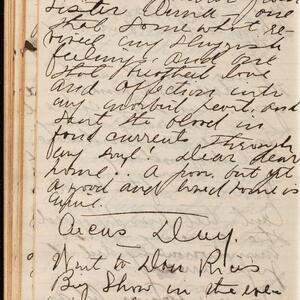 sister Annie one
that somewhat re-
vived my sluggish
feelings. And one
that breathed love
and affection into
my morbid heart, and
sent the blood in
fond currents through
my soul! Dear dear
home.. A poor but yet
a good and loved some is
mine.
Circus Day.
Went to Dan Rices
Big Show in the eve